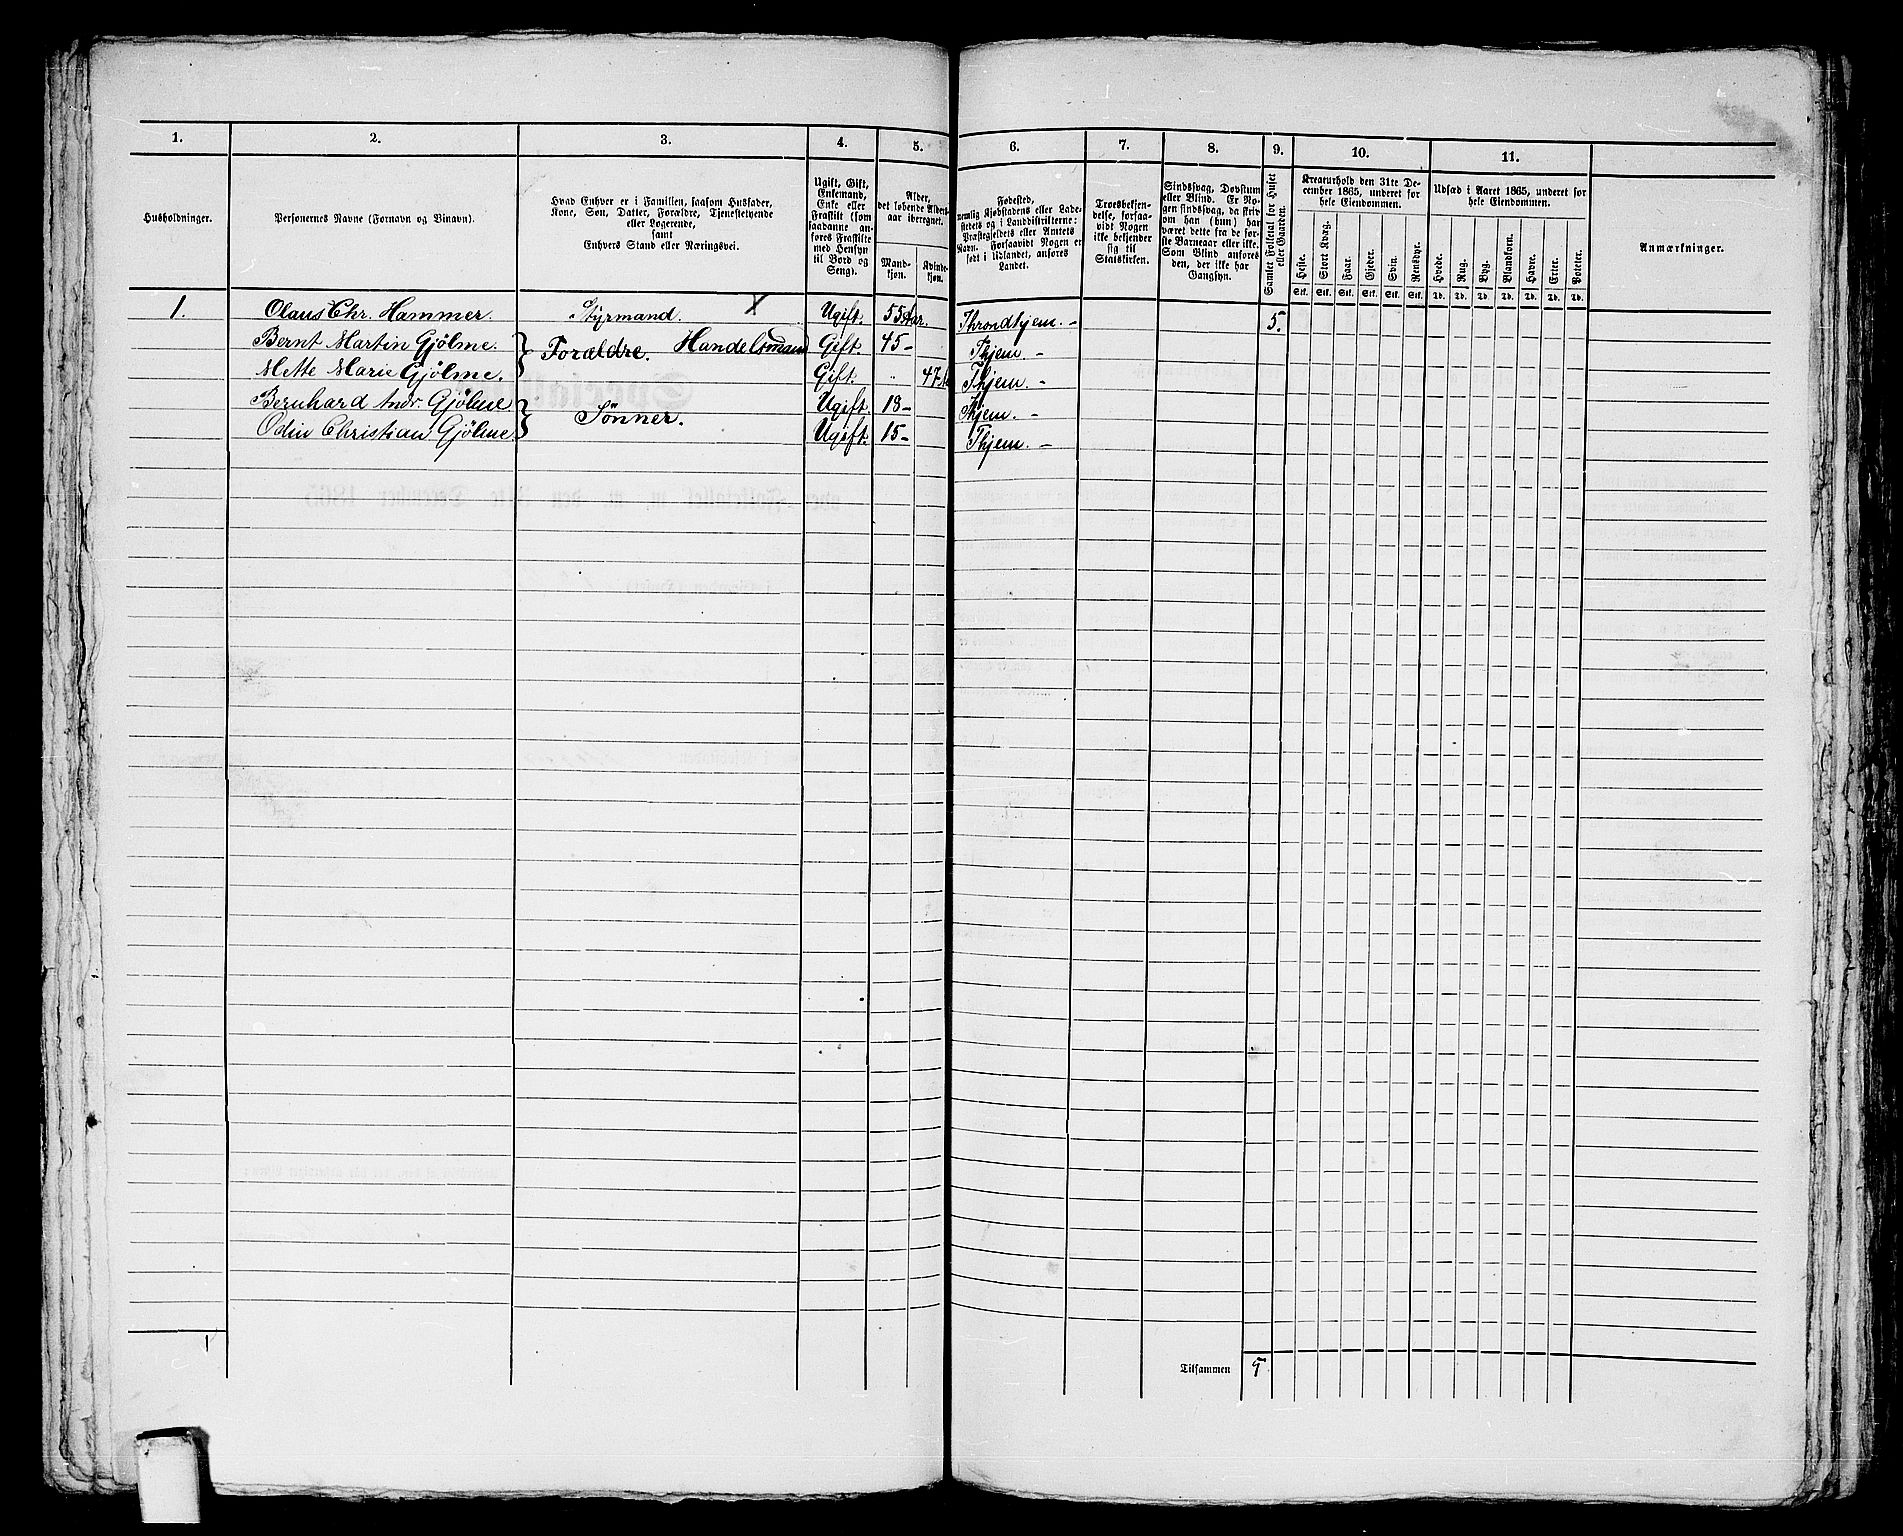 1. 2. 3. 4. 5. 6. 7. 8. 9. 10. 11.
Husholdninger.
Personernes Navne (Fornavn og Binavn).
Hvad Enhver er i Familien, saasom Husfader,
Kone, Søn, Datter, Forældre, Tjenestetyende
eller Logerende,
samt
Enhvers Stand eller Næringsvei.
Ugift, Gift,
Enkemand,
Enke eller
Fraskilt (som
saadanne an-
føres Fraskilte
med Hensyn
til Bord og
Seng).
Alder,
det løbende Alders-
aar iberegnet.
Mand-
kjøn.
Kvinde-
kjøn.
Fødested,
nemlig Kjøbstadens eller Lade-
stedets og i Landdistrikterne:
Præstegjeldets eller Amtets
Navn. Forsaavidt Nogen er
født i Udlandet, anføres
Landet.
Troesbekjen-
delse, forsaa-
vidt Nogen
ikke bekjender
sig til
Statskirken.
Sindssvag, Døvstum
eller Blind. Er No-
gen sindssvag, da skriv
om han (hun) har
været dette fra de før-
ste Barneaar eller ikke.
Som Blind anføres
den, der ikke har
Gangsyn.
Samlet Folketal for Huset
eller Gaarden.
Kreaturhold den 31te De-
cember 1865, underet for
hele Eiendommen.
Heste.
Stort Kvæg.
Faar.
Gjeder.
Svin.
Rensdyr.
Stk. Stk. Stk. Stk. Stk. Stk.
Udsæd i Aaret 1865, underet for
hele Eiendommen.
Hvede.
Rug.
Byg.
Blandkorn.
Havre.
Erter.
Poteter.
Td. Td. Td. Td. Td. Td. Td.
Anmærkninger.
1. Olaus Chr. Hammer. Styrmand. X Ugift. 55 Aar. Throndhjem. - 5.
Bernt Martin Gjölme. } Forældre. Handelsmand Gift. 45 - Thjem. -
Mette Marie Gjölme. Gift. " 47 Thjem. -
Bernhard Andr. Gjölme } Sønner. Ugift. 18 - Thjem. -
Odin Christian Gjölme Ugift. 15 - Thjem. -
1
Tilsammen 5